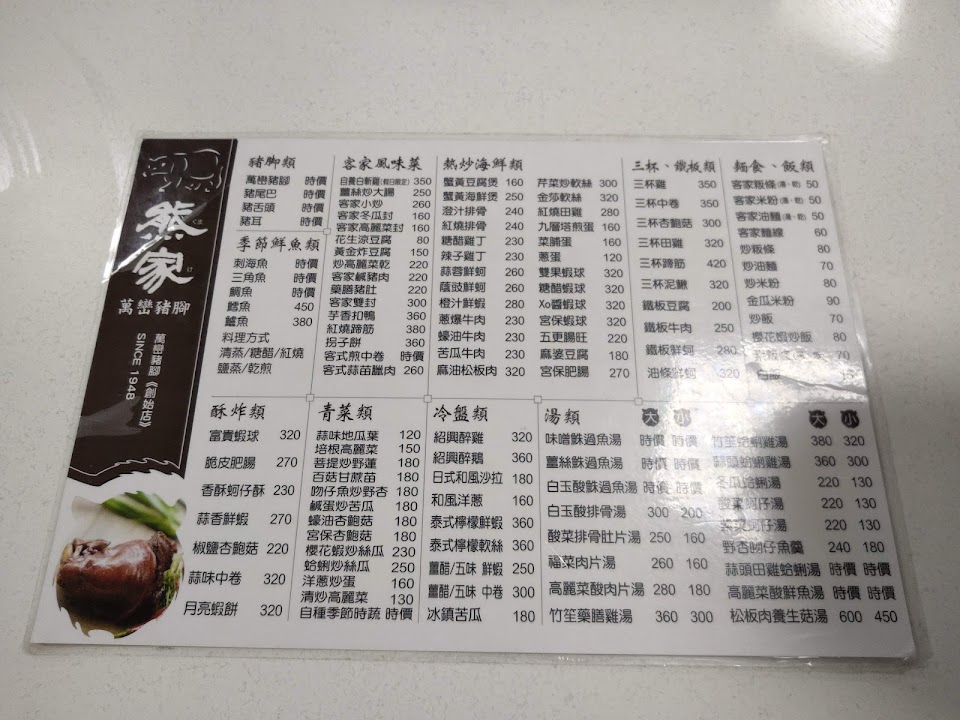 熊家
萬巒豬腳
萬巒豬腳《創始店》
SINCE 1948
豬腳類
萬巒豬腳 時價
豬尾巴 時價
豬舌頭 時價
豬耳 時價
季節鮮魚類
刺海魚 時價
三角魚 時價
鯛魚 時價
鱈魚 450
鱸魚 380
料理方式
清蒸/糖醋/紅燒
鹽蒸/乾煎
客家風味菜
自養白斬雞(假日限定) 350
薑絲炒大腸 250
客家小炒 260
客家冬瓜封 160
客家高麗菜封 160
花生涼豆腐 80
黃金炸豆腐 150
炒高麗菜乾 220
客家鹹豬肉 220
藥膳豬肚 220
客家雙封 300
芋香扣鴨 360
紅燒蹄筋 380
拐子餅 360
客式煎中卷 時價
客式蒜苗臘肉 260
熱炒海鮮類
蟹黃豆腐煲 160
蟹黃海鮮煲 250
澄汁排骨 240
紅燒排骨 240
糖醋雞丁 230
辣子雞丁 230
蒜蓉鮮蚵 260
蔭豉鮮蚵 260
橙汁鮮蝦 280
蔥爆牛肉 230
蠔油牛肉 230
苦瓜牛肉 230
麻油松板肉 320
芹菜炒軟絲 300
金莎軟絲 320
紅燒田雞 280
九層塔煎蛋 160
菜脯蛋 160
蔥蛋 120
雙果蝦球 320
糖醋蝦球 320
Xo醬蝦球 320
宮保蝦球 320
五更腸旺 220
麻婆豆腐 180
宮保肥腸 270
三杯、鐵板類
三杯雞 350
三杯中卷 350
三杯杏鮑菇 300
三杯田雞 320
三杯蹄筋 420
三杯泥鰍 320
鐵板豆腐 200
鐵板牛肉 250
鐵板鮮蚵 280
油條鮮蚵 320
麵食、飯類
客家粄條(湯、乾) 50
客家米粉(湯、乾) 50
客家油麵(湯、乾) 50
客家麵線 60
炒粄條 80
炒油麵 70
炒米粉 80
金瓜米粉 90
炒飯 70
櫻花蝦炒飯 80
白飯
酥炸類
富貴蝦球 320
脆皮肥腸 270
香酥蚵仔酥 230
蒜香鮮蝦 270
椒鹽杏鮑菇 220
蒜味中卷 320
月亮蝦餅 320
青菜類
蒜味地瓜葉 120
培根高麗菜 150
菩提炒野蓮 180
百菇甘蔗苗 180
吻仔魚炒野杏 180
鹹蛋炒苦瓜 180
蠔油杏鮑菇 180
宮保杏鮑菇 180
櫻花蝦炒絲瓜 230
蛤蜊炒絲瓜 250
洋蔥炒蛋 160
清炒高麗菜 130
自種季節時蔬 時價
冷盤類
紹興醉雞 320
紹興醉鵝 360
日式和風沙拉 180
和風洋蔥 160
泰式檸檬鮮蝦 360
泰式檸檬軟絲 360
薑醋/五味 鮮蝦 250
薑醋/五味 中卷 300
冰鎮苦瓜 180
湯類 大 小
味噌魩過魚湯 時價 時價
薑絲魩過魚湯 時價 時價
白玉酸魩過魚湯 時價 時價
白玉酸排骨湯 300 200
酸菜排骨肚片湯 250 160
福菜肉片湯 260 160
高麗菜酸肉片湯 280 180
竹笙藥膳雞湯 360 300
大 小
竹笙蛤蜊雞湯 380 320
蒜頭蛤蜊雞湯 360 300
冬瓜蛤蜊湯 220 130
酸菜蚵仔湯 220 130
紫菜蚵仔湯 220 130
野杏吻仔魚羹 240 180
蒜頭田雞蛤蜊湯 時價 時價
高麗菜酸鮮魚湯 時價 時價
松板肉養生菇湯 600 450